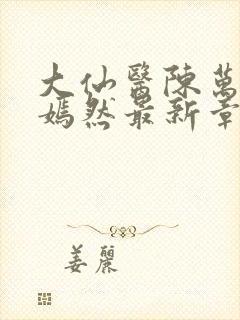 大仙醫陳萬
嫣然最新章
姜麗